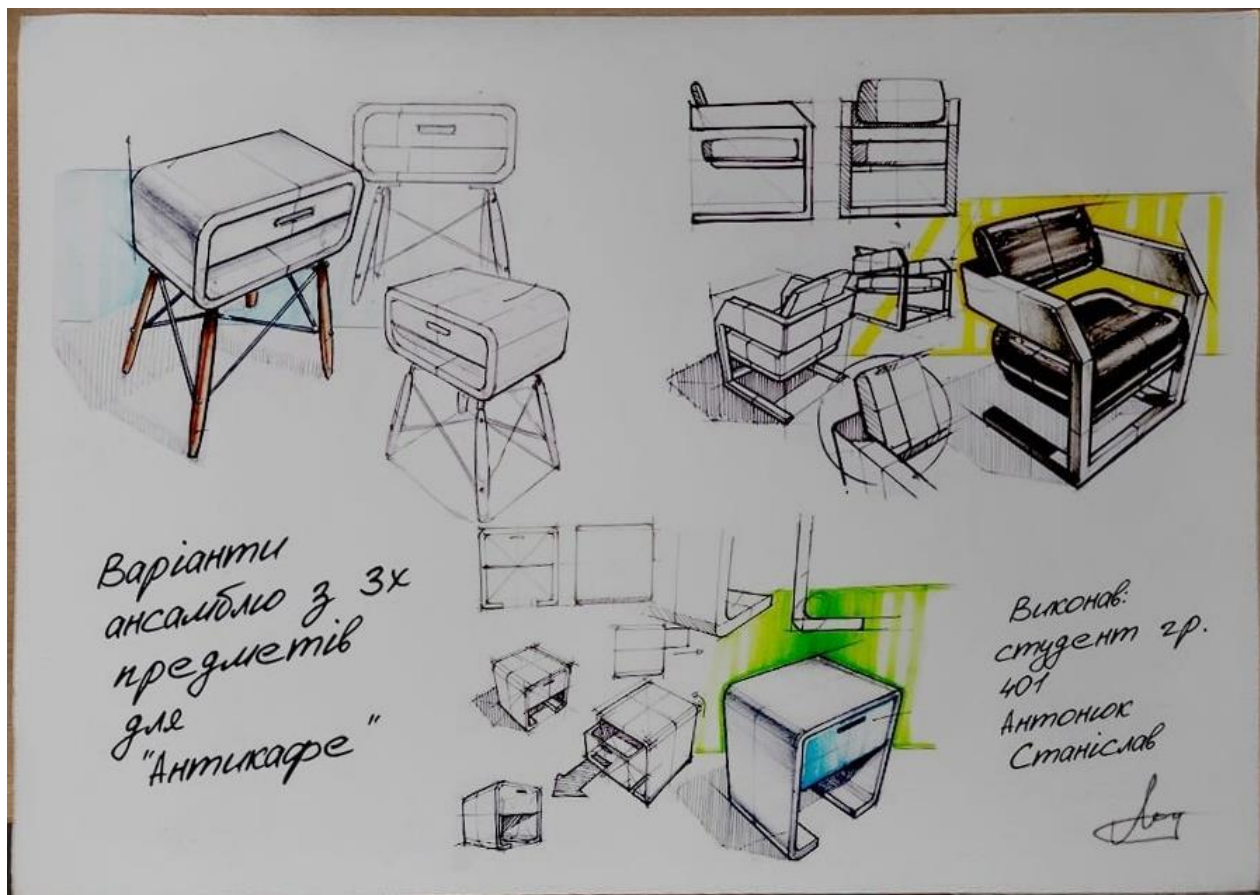 Варіанти
ансамблю з 3х
предметів
для
"Антикафе"
Виконав:
студент гр.
401
Антонюк
Станіслав